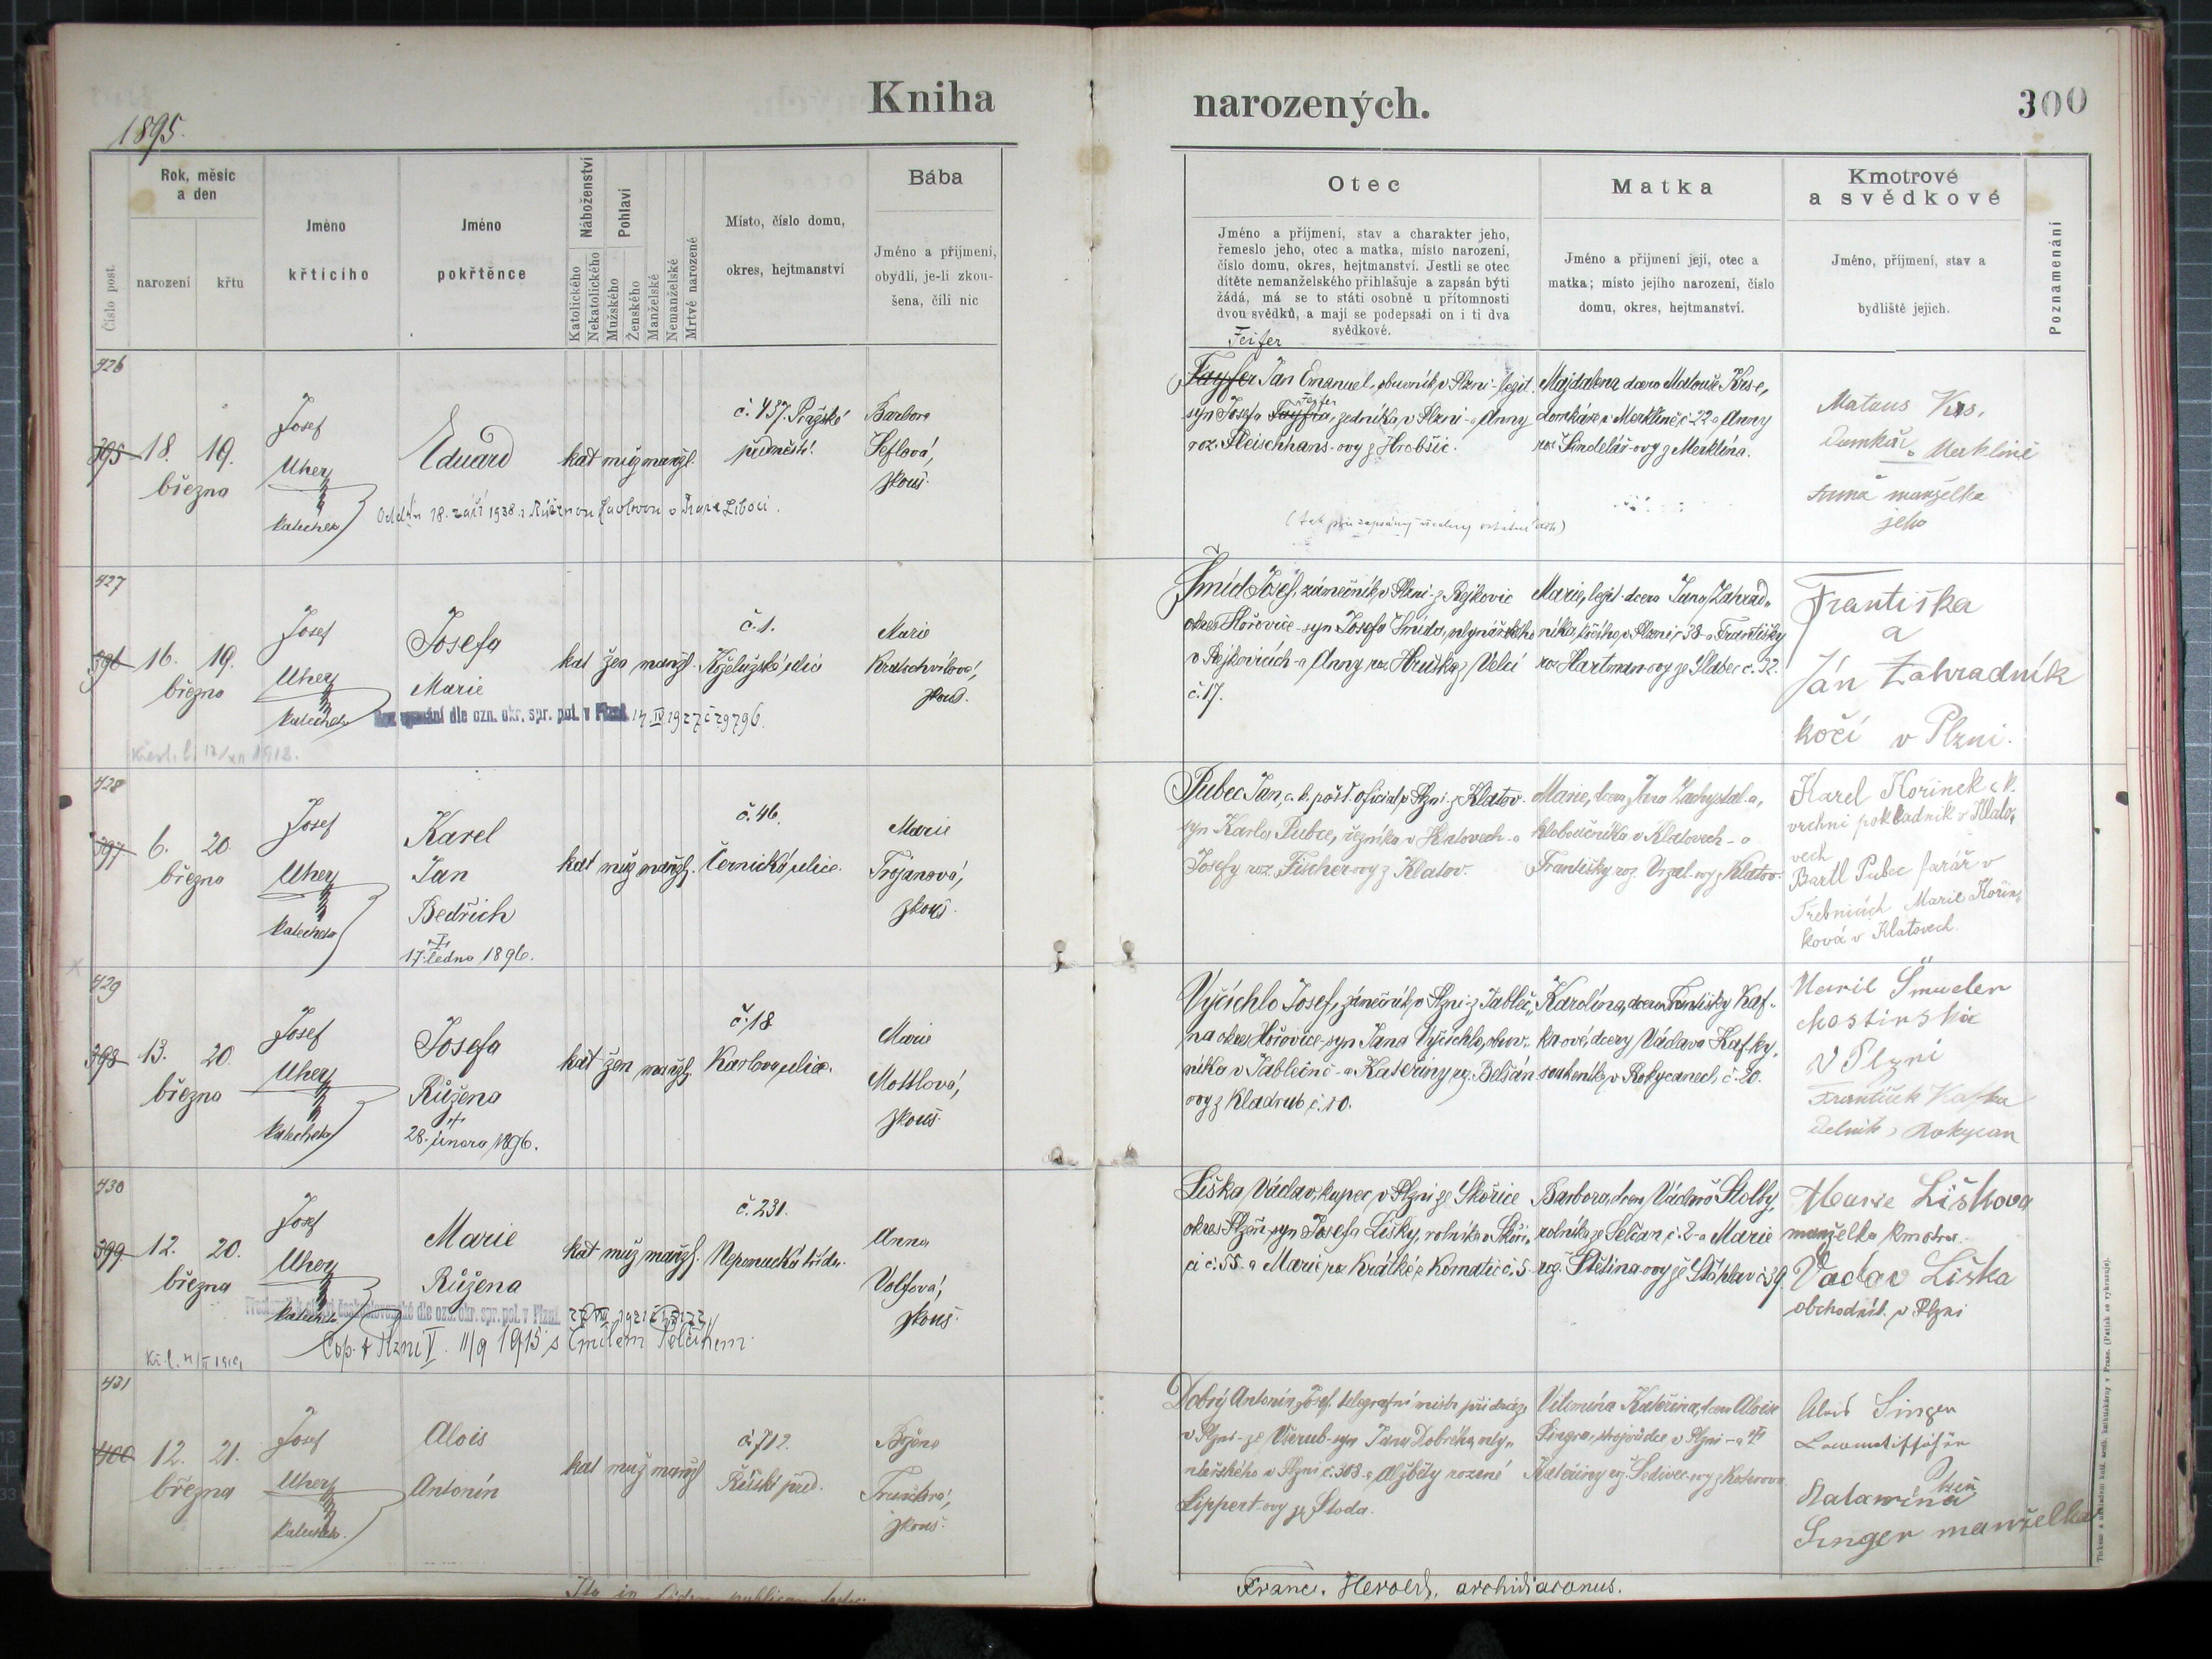 Kniha
narozených.
300
1895.
Číslo post.
Rok, měsíc
a den
narození
křtu
Jméno
křticího
Jméno
pokřtěnce
Náboženství
Katolického
Nekatolického
Pohlaví
Mužského
Ženského
Manželské
Nemanželské
Mrtvě narozené
Místo, číslo domu,
okres, hejtmanství
Bába
Jméno a příjmení,
obydlí, je-li zkou-
šena, čili nic
Otec
Jméno a příjmení, stav a charakter jeho,
řemeslo jeho, otec a matka, místo narození,
číslo domu, okres, hejtmanství. Jestli se otec
dítěte nemanželského přihlašuje a zapsán býti
žádá, má se to státi osobně u přítomnosti
dvou svědků, a mají se podepsati on i ti dva
svědkové.
Matka
Jméno a příjmení její, otec a
matka; místo jejího narození, číslo
domu, okres, hejtmanství.
Kmotrové
a svědkové
Jméno, příjmení, stav a
bydliště jejich.
Poznamenání
426
395
18. 19.
března
Josef
Uher
katecheta
Eduard
kat muž manž.
č. 437. Pražské
předměstí.
Barbora
zkouš.
Feifer
Jan Emanuel, obuvník v Plzni - legit.
syn Josefa Fayfra, zedníka v Plzni - a Anny
roz. Fleischhans-ovy z Hrobšic.
Majdalena dcera Matouše Krse,
domkáře v Merklíně č. 22 a Anny
roz. Šindelář-ovy z Merklína.
Mataus Krs,
Domkář v Merklině
Anna manželka
jeho
427
396
16. 19.
března
Josef
Uher
katecheta
Josefa
Marie
kat žen manžl.
č. 1.
Koželužská ulice
Marie
Kratochvílová,
zkouš.
dle ozn. okr. spr. pol. v Plzni 14. IV 1927 č. 29796.
Šmíd Josef, zámečník v Plzni - z Rejkovic
okres Hořovice - syn Josefa Šmída, mlynářského
v Rejkovicích - a Anny roz. Hruška z Velcí
č. 17.
Marie, legit. dcera Jana Zahrad-
níka, kočího v Plzni č. 38 a Františky
roz. Hartman-ovy ze Slabec č. 32.
Františka
a
Ján Zahradník
kočí v Plzni.
428
397
6. 20.
března
Josef
Uher
katecheta
Karel
Jan
Bedřich
17. ledna 1896.
kat muž manžl.
č. 46.
Černická ulice.
Marie
Trojanová,
zkouš.
Pubec Jan, c. k. pošt. oficial v Plzni - z Klatov.
syn Karla Pubce, řezníka v Klatovech - a
Josefy roz. Fischer-ovy z Klatov.
Marie, dcera Jana Zachystal-a,
kloboučníka v Klatovech - a
Františky roz. Vrzal-ovy z Klatov.
Karel Kořinek c. k.
vrchní pokladník v Klato-
vech
Bartl Pubec farář v
Třebnicích Marie Kořín-
ková v Klatovech.
429
398
13. 20.
března
Josef
Uher
katecheta
Josefa
Růžena
28. února 1896.
kat žen manžl.
č. 18
Karlova ulice.
Marie
Mottlová,
zkouš.
Vyčichlo Josef, zámečník v Plzni - z Jableč-
na okres Hořovice - syn Jana Vyčichlo, obuv-
níka v Jablečně - a Kateřiny roz. Belšán
ovy z Kladrub č. 10.
Karolína, dcera Františky Kaf-
karové, dcery Václava Kafky,
soukeníka v Rokycanech, č. 20.
v Plzni
František Kafka
dělník z Rokycan
430
399
12. 20.
března
Josef
Uher
katecheta
Marie
Růžena
kat muž manžl.
č. 231.
Nepomucká třída.
Anna
Volfová,
zkouš.
československé dle ozn. okr. spr. pol. v Plzni
Cop. v Plzni V. 11/9 1915 s Emilem Pelčíkem
Liška Václav, kupec v Plzni ze Skořice
okres Plzeň syn Josefa Lišky, rolníka v Skoři-
ci č. 55. a Marie roz. Krátké z Kornatic č. 5.
Barbora, dcera Václava Stolby,
rolníka ze Selčan č. 2 - a Marie
roz. Štětina-ovy ze Šťáhlav č. 39.
Marie Liškova
manželka kmotra.
Vaclav Liška
obchodník v Plzni
431
400
12. 21.
března
Josef
Uher
katecheta.
Alois
Antonín
kat muž manžl
č. 712.
Říšské před.
zkouš.
Dobrý Antonín Josef, telegrafní mistr při dráze
v Plzni - ze Všerub - syn Jana Dobrého, mly-
nářského v Plzni č. 308 - a Alžběty rozené
Lippert-ovy ze Stoda.
Vilemína Kateřina, dcera Aloise
Singra, strojvůdce v Plzni - a
Kateřiny roz. Šedivec-ovy z Koterova
Alois Singer
Plzeň
Katarina
Singer manželka
Franc. Herold, archidiaconus.